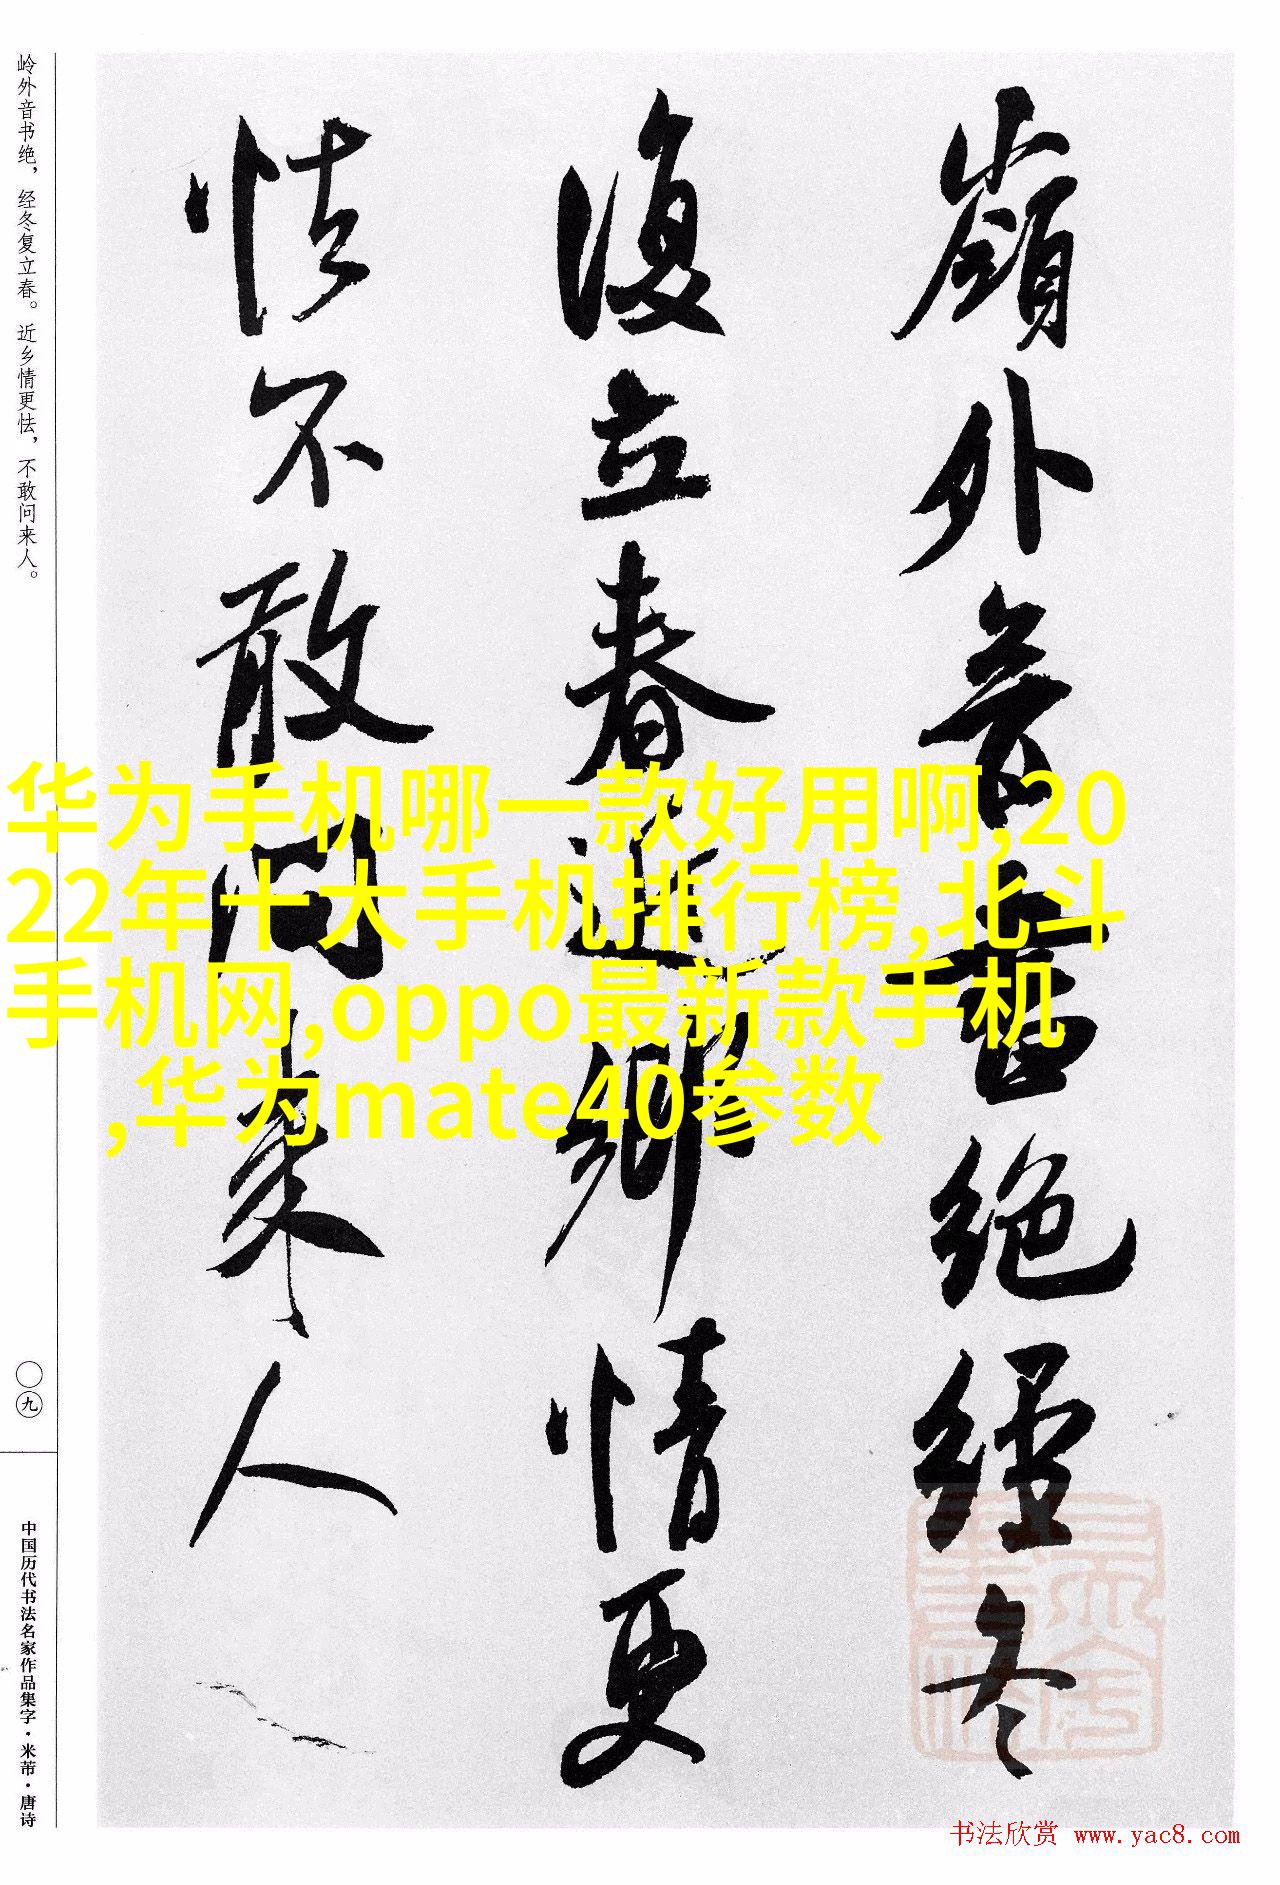 嶺外音書絕經冬
復立春近鄉情更
怯不敢問来人
岭外音书绝，经冬复立春。近乡情更怯，不敢问来人。
〇九
中国历代书法名家作品集字·米芾·唐诗
华为手机哪一款好用啊,20
22年十大手机排行榜,北斗
手机网,oppo最新款手机
,华为mate40参数
书法欣赏 www.yac8.com